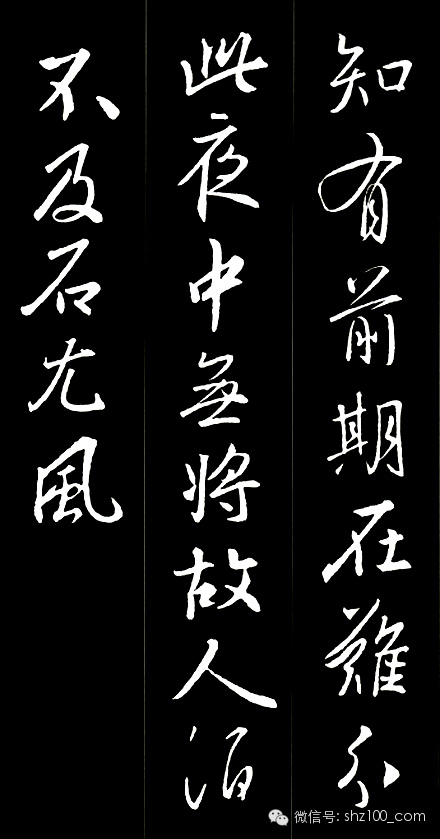 知有前期在難分
此夜中無將故人酒
不及石尤風
微信号: shz100_com